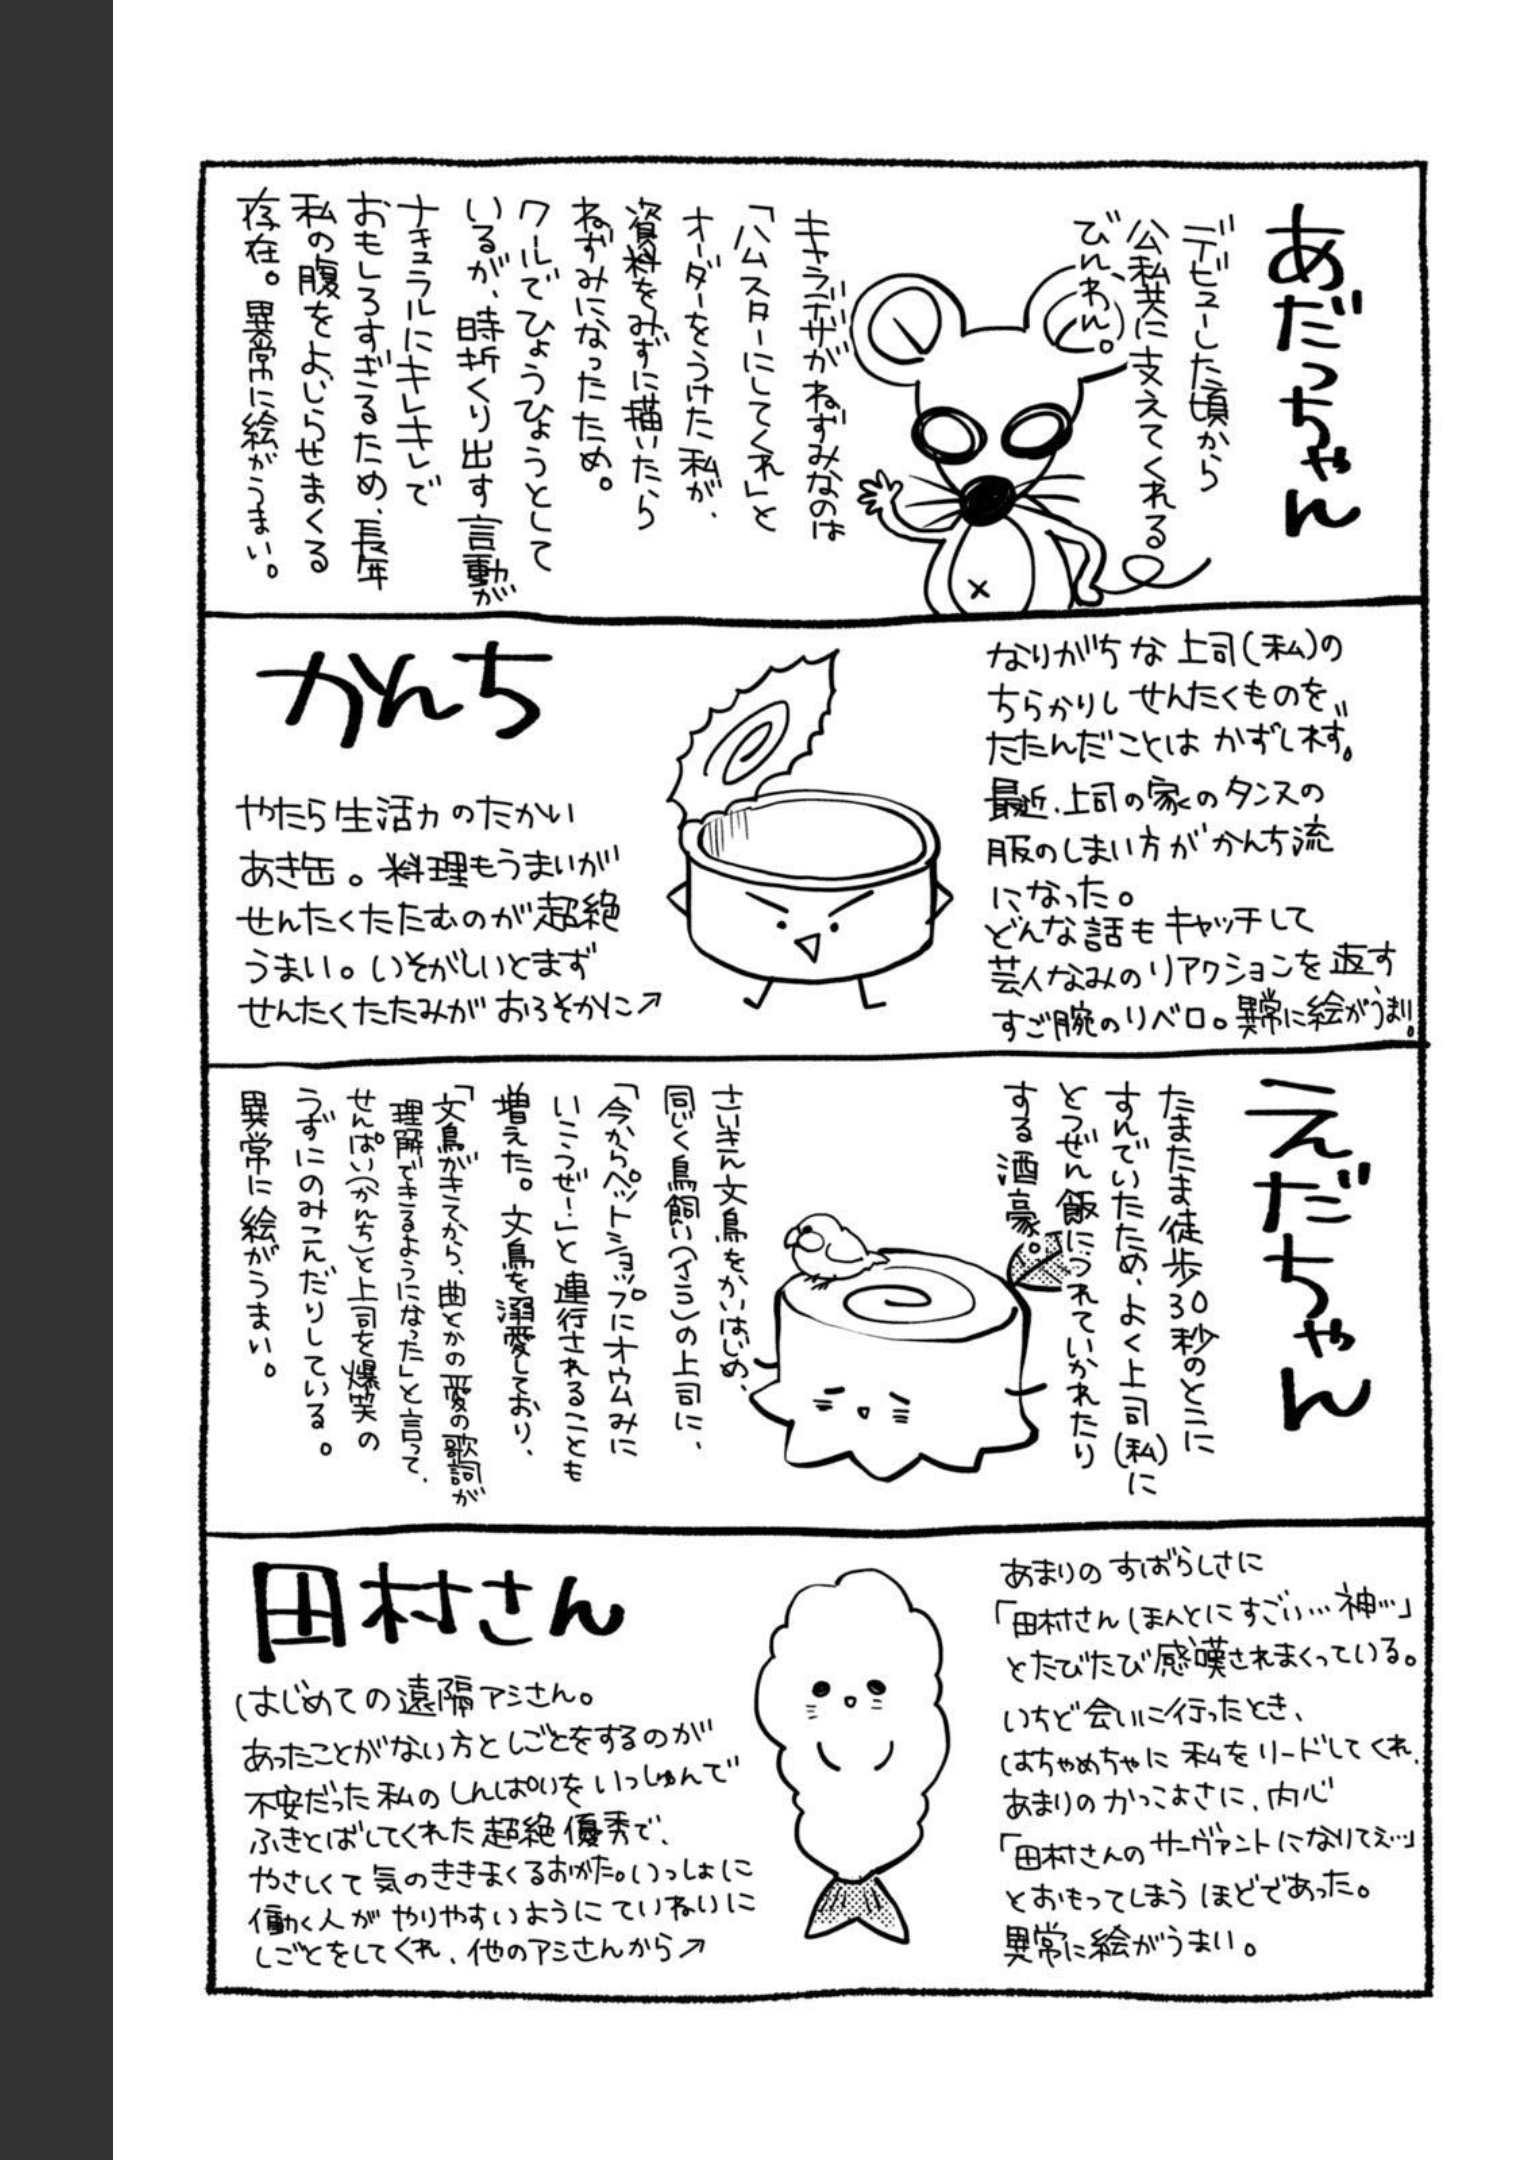 あだっちゃん
デビューした頃から
公私共に支えてくれる
びんわん。
キャラデザがねずみなのは
「ハムスターにしてくれ」と
オーダーをうけた私が、
資料をみずに描いたら
ねずみになったため。
クールでひょうひょうとして
いるが、時折くり出す言動が
ナチュラルにキレキレで
おもしろすぎるため、長年
私の腹をよじらせまくる
存在。異常に絵がうまい。
かんち
やたら生活力のたかい
あき缶。料理もうまいが
せんたくたたむのが超絶
うまい。いそがしいとまず
せんたくたたみがおろそかに↗
なりがちな上司(私)の
ちらかりしせんたくものを
たたんだことはかずしれず。
最近、上司の家のタンスの
服のしまい方がかんち流
になった。
どんな話もキャッチして
芸人なみのリアクションを返す
すご腕のリベロ。異常に絵がうまい!
えだちゃん
たまたま徒歩30秒のとこに
すんでいたため、よく上司(私)に
とつぜん飯につれていかれたり
する酒豪。
さいきん文鳥をかいはじめ、
同じく鳥飼い(インコ)の上司に、
「今からペットショップにオウムみに
いこうぜー」と連行されることも
増えた。文鳥を溺愛しており、
「文鳥がきてから、曲とかの愛の歌詞が
理解できるようになった」と言って、
せんぱい(かんち)と上司を爆笑の
うずにのみこんだりしている。
異常に絵がうまい。
田村さん
はじめての遠隔アシさん。
あったことがない方としごとをするのが
不安だった私のしんぱいをいっしゅんで
ふきとばしてくれた超絶優秀で、
やさしくて気のききまくるおかた。いっしょに
働く人がやりやすいようにていねいに
しごとをしてくれ、他のアシさんから↗
あまりのすばらしさに
「田村さんほんとにすごい…神…」
とたびたび感嘆されまくっている。
いちど会いに行ったとき、
はちゃめちゃに私をリードしてくれ、
あまりのかっこよさに、内心
「田村さんのサーヴァントになりてえ…」
とおもってしまうほどであった。
異常に絵がうまい。